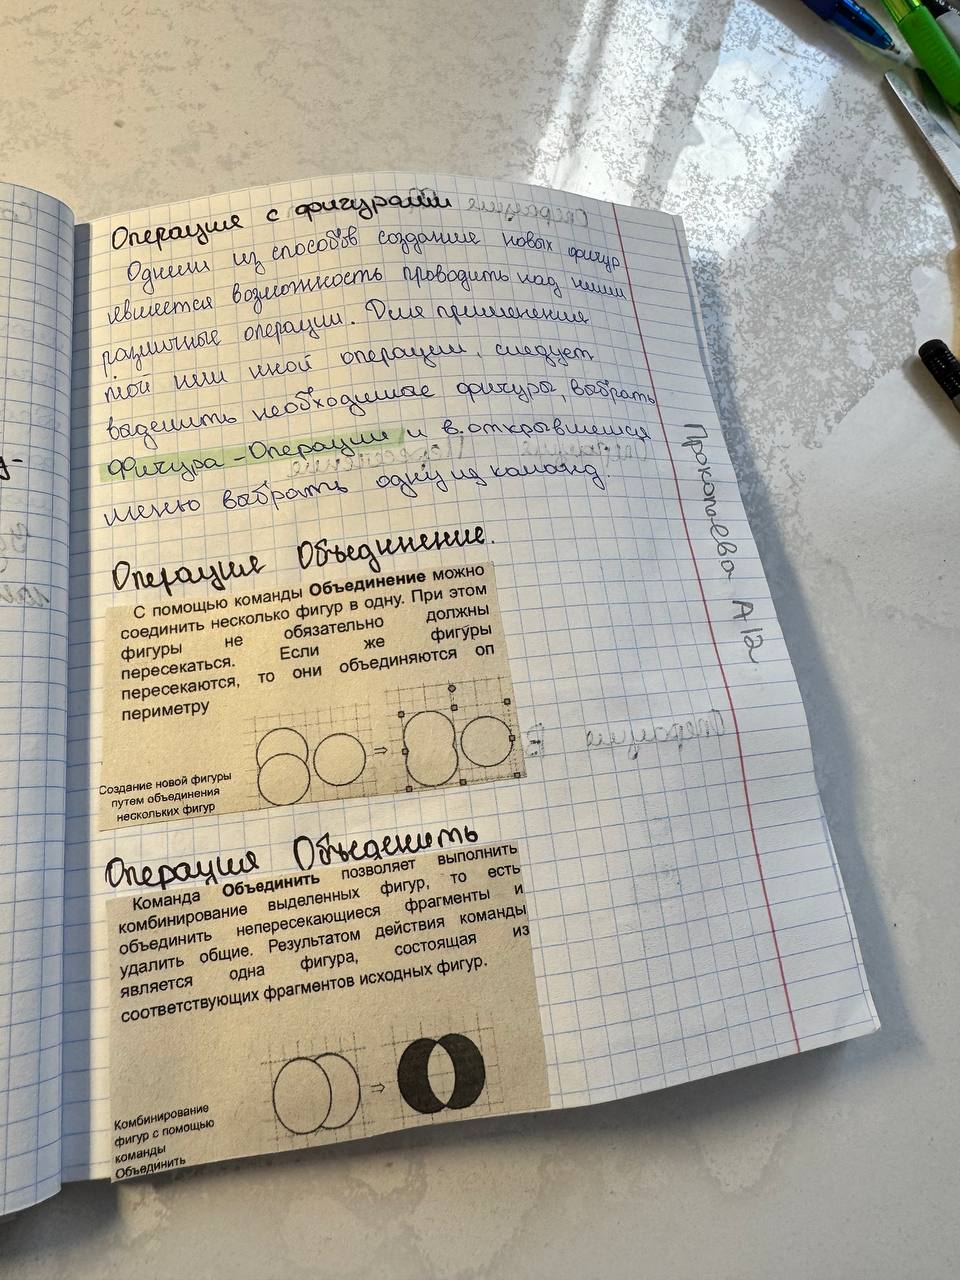 Операции с фигурами
Одним из способов создание новых фигур
является возможность проводить над ними
различные операции. Для применения
той или иной операции, следует
выделить необходимые фигуры, выбрать
Фигура-Операции и в открывшемся
меню выбрать одну из команд.
Операция Объединение.
С помощью команды Объединение можно
соединить несколько фигур в одну. При этом
фигуры не обязательно должны
пересекаться. Если же фигуры
пересекаются, то они объединяются оп
периметру
Создание новой фигуры
путем объединения
нескольких фигур
Операция Объеденить
Команда Объединить позволяет выполнить
комбинирование выделенных фигур, то есть
объединить непересекающиеся фрагменты и
удалить общие. Результатом действия команды
является одна фигура, состоящая из
соответствующих фрагментов исходных фигур.
Комбинирование
фигур с помощью
команды
Объединить
Прокопаева А12